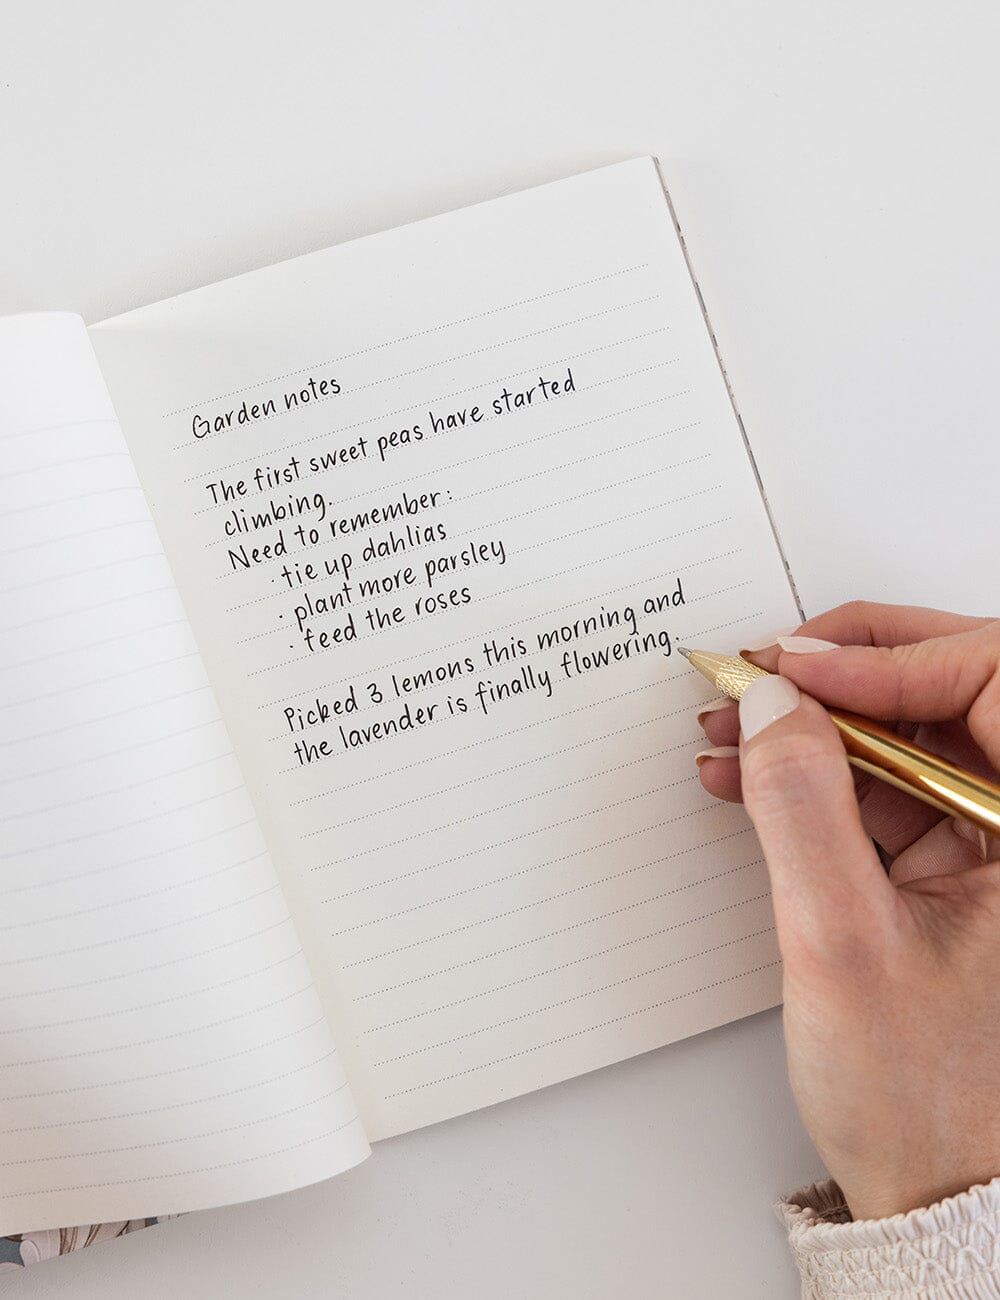 Garden notes
The first sweet peas have started
climbing.
Need to remember:
· tie up dahlias
· plant more parsley
· feed the roses
Picked 3 lemons this morning and
the lavender is finally flowering.